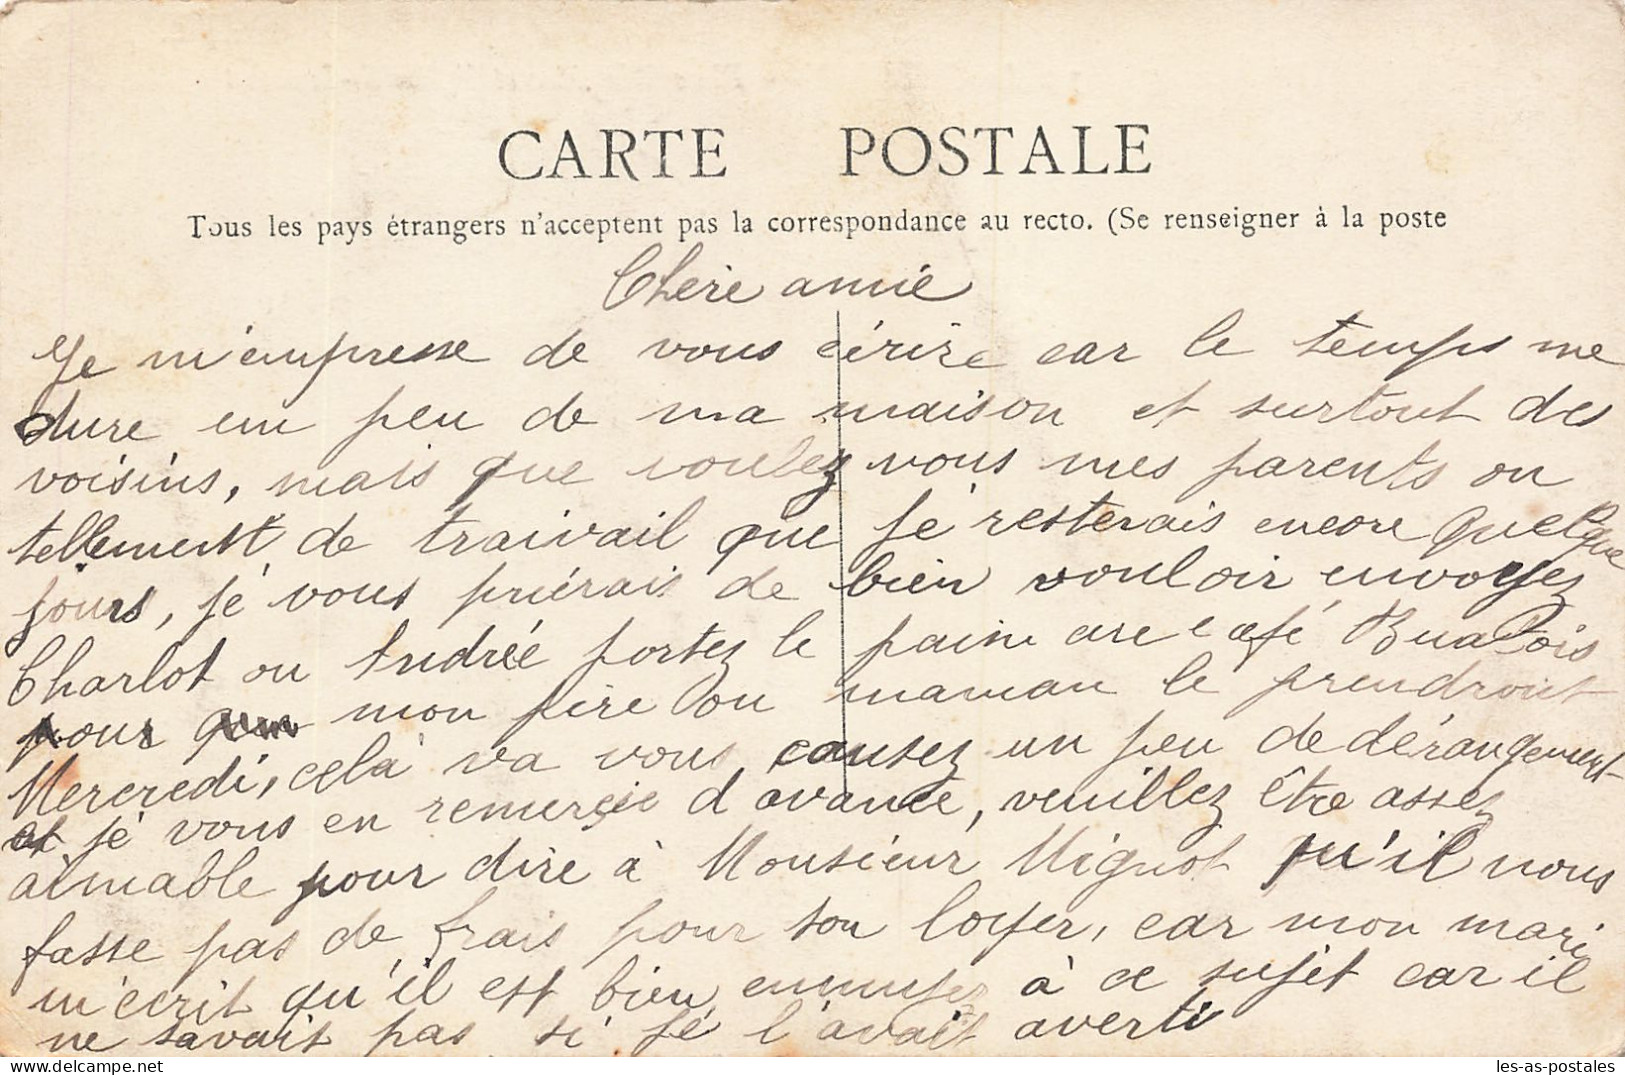 CARTE POSTALE
Tous les pays étrangers n'acceptent pas la correspondance au recto. (Se renseigner à la poste
Chère amie
Je m'empresse de vous écrire car le temps me
dure un peu de ma maison et surtout des
voisins, mais que voulez vous mes parents on
tellement de traivail que je resterais encore quelque
jours, je vous priérais de bien vouloir envoyez
Charlot ou Andrée portez le pain au café
pour mon père ou maman le prendront
Mercredi, celà va vous causez un peu de dérangement
et je vous en remerçie d'avance, veuillez être assez
aimable pour dire à Monsieur Mignot qu'il nous
fasse pas de frais pour son loyer, car mon mari
m'ecrit qu'il est bien ennuyez à ce sujet car il
ne savait pas si je l'avait averti
les-as-postales